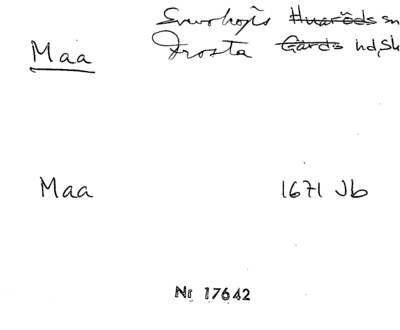 Svensköps Huaröds sn
Maa Frosta Gärds hd, Sk
Maa 1671 Jb
Nr 17642